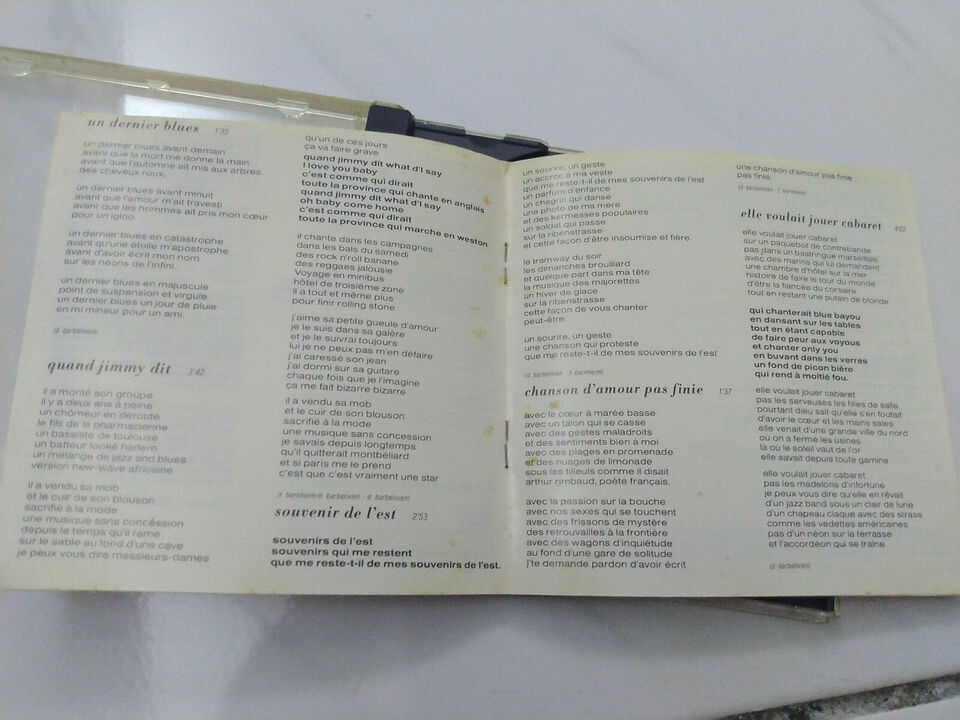 un dernier blues 1'35
un dernier blues avant demain
avant que la mort me donne la main
avant que l'automne ait mis aux arbres
des cheveux roux.
un dernier blues avant minuit
avant que l'amour m'ait travesti
avant que les hommes ait pris mon cœur
pour un igloo.
un dernier blues en catastrophe
avant qu'une étoile m'apostrophe
avant d'avoir écrit mon nom
sur les néons de l'infini.
un dernier blues en majuscule
point de suspension et virgule
un dernier blues un jour de pluie
en mi mineur pour un ami.
(d. barbelivien)
quand jimmy dit 3'42
il a monté son groupe
il y a deux ans à peine
un chômeur en déroute
le fils de la pharmacienne
un bassiste de toulouse
un batteur looké harlem
un mélange de jazz and blues
version new-wave africaine
il a vendu sa mob
et le cuir de son blouson
sacrifié à la mode
une musique sans concession
depuis le temps qu'il rame
sur le sable au fond d'une cave
je peux vous dire messieurs-dames
qu'un de ces jours
ça va faire grave
quand jimmy dit what d'I say
I love you baby
c'est comme qui dirait
toute la province qui chante en anglais
quand jimmy dit what d'I say
oh baby come home
c'est comme qui dirait
toute la province qui marche en weston
il chante dans les campagnes
dans les bals du samedi
des rock n'roll banane
des reggaes jalousie
Voyage en minibus
hôtel de troisième zone
il a tout et même plus
pour finir rolling stone
j'aime sa petite gueule d'amour
je le suis dans sa galère
et je le suivrai toujours
lui je ne peux pas m'en défaire
j'ai caressé son jean
j'ai dormi sur sa guitare
chaque fois que je l'imagine
ça me fait bizarre bizarre
il a vendu sa mob
et le cuir de son blouson
sacrifié à la mode
une musique sans concession
je savais depuis longtemps
qu'il quitterait montbéliard
et si paris me le prend
c'est que c'est vraiment une star
(f. bernheim/d. barbelivien - d. barbelivien)
souvenir de l'est 2'53
souvenirs de l'est
souvenirs qui me restent
que me reste-t-il de mes souvenirs de l'est.
un sourire, un geste
un accroc à ma veste
que me reste-t-il de mes souvenirs de l'est
un parfum d'enfance
un chagrin qui danse
une photo de ma mère
et des kermesses populaires
un soldat qui passe
sur la ribenstrasse
et cette façon d'être insoumise et fière.
le tramway du soir
les dimanches brouillard
et quelque part dans ma tête
la musique des majorettes
un hiver de glace
sur la ribenstrasse
cette façon de vous chanter
peut-être.
un sourire, un geste
une chanson qui proteste
que me reste-t-il de mes souvenirs de l'est
(d. barbelivien - f. bernheim)
chanson d'amour pas finie 1'37
avec le cœur à marée basse
avec un talon qui se casse
avec des gestes maladroits
et des sentiments bien à moi
avec des plages en promenade
et des nuages de limonade
sous les tilleuls comme il disait
arthur rimbaud, poète français.
avec la passion sur la bouche
avec nos sexes qui se touchent
avec des frissons de mystère
des retrouvailles à la frontière
avec des wagons d'inquiétude
au fond d'une gare de solitude
j'te demande pardon d'avoir écrit
une chanson d'amour pas finie
pas finie.
(d. barbelivien - f. bernheim)
elle voulait jouer cabaret 4'02
elle voulait jouer cabaret
sur un paquebot de contrebande
pas dans un bastringue marseillais
avec des marins qui lui demandent
une chambre d'hôtel sur la mer
histoire de faire le tour du monde
d'être la fiancée du corsaire
tout en restant une putain de blonde
qui chanterait blue bayou
en dansant sur les tables
tout en étant capable
de faire peur aux voyous
et chanter only you
en buvant dans les verres
un fond de picon bière
qui rend à moitié fou.
elle voulait jouer cabaret
pas les serveuses les filles de salle
pourtant dieu sait qu'elle s'en foutait
d'avoir le cœur et les mains sales
elle venait d'une grande ville du nord
où on a fermé les usines
là où le soleil vaut de l'or
elle savait depuis toute gamine
elle voulait jouer cabaret
pas les madelons d'infortune
je peux vous dire qu'elle en rêvait
d'un jazz band sous un clair de lune
d'un chapeau claque avec des strass
comme les vedettes américaines
pas d'un néon sur la terrasse
et l'accordéon qui se traîne
(d. barbelivien)